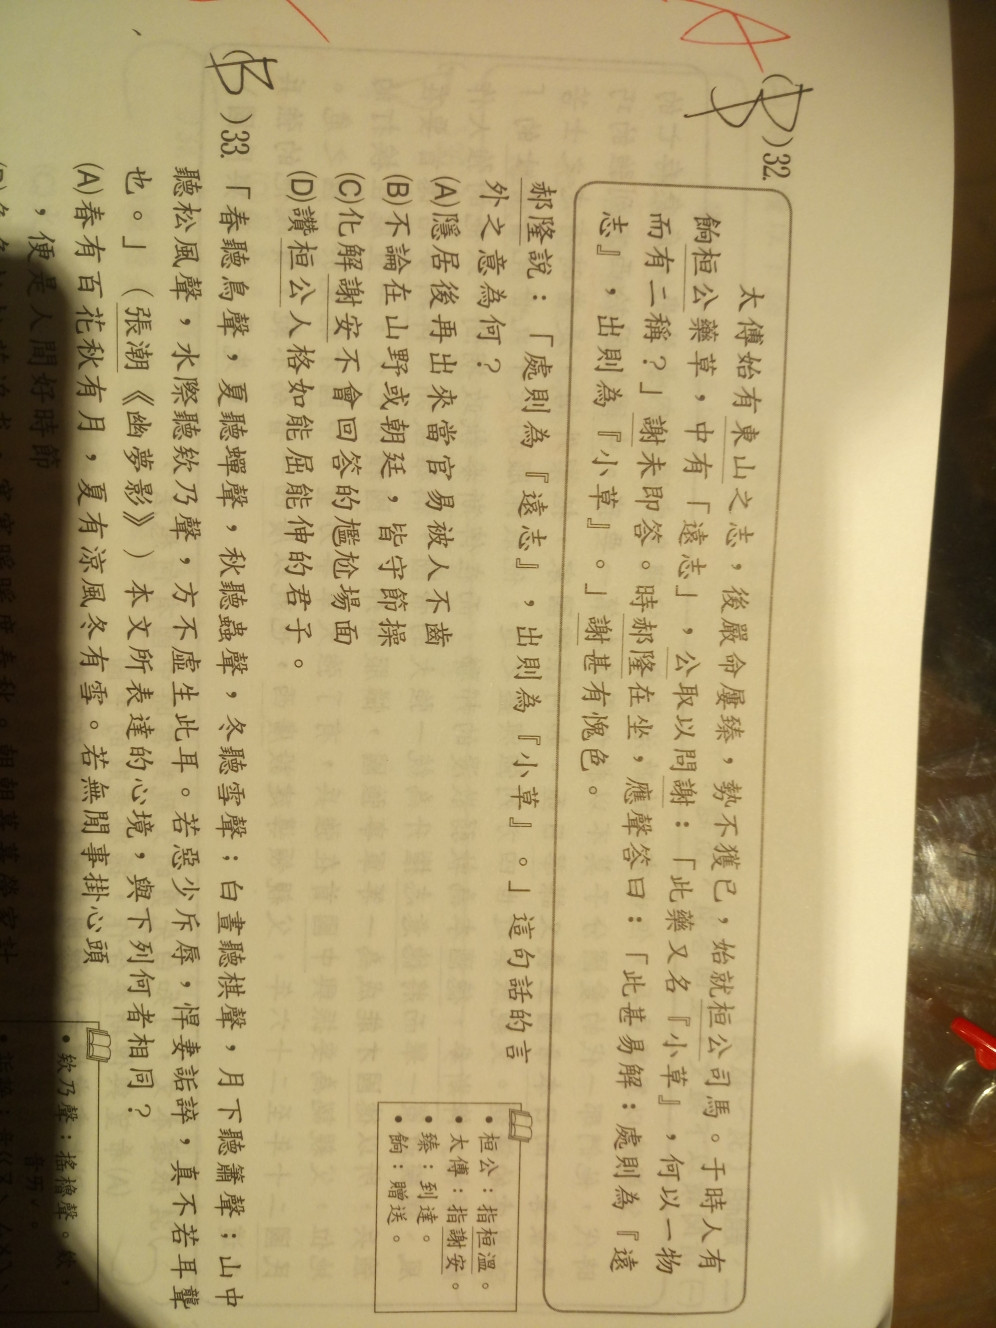 (B)32.
太傅始有東山之志，後嚴命屢臻，勢不獲已，始就桓公司馬。于時人有
餉桓公藥草，中有「遠志」，公取以問謝：「此藥又名『小草』，何以一物
而有二稱？」謝未即答。時郝隆在坐，應聲答曰：「此甚易解：處則為『遠
志』，出則為『小草』。」謝甚有愧色。
郝隆說：「處則為『遠志』，出則為『小草』。」這句話的言
外之意為何？
(A)隱居後再出來當官易被人不齒
(B)不論在山野或朝廷，皆守節操
(C)化解謝安不會回答的尷尬場面
(D)讚桓公人格如能屈能伸的君子。
•桓公：指桓溫。
•太傅：指謝安。
•臻：到達。
•餉：贈送。
(B)33.「春聽鳥聲，夏聽蟬聲，秋聽蟲聲，冬聽雪聲；白晝聽棋聲，月下聽簫聲；山中
聽松風聲，水際聽欸乃聲，方不虛生此耳。若惡少斥辱，悍妻詬誶，真不若耳聾
也。」（張潮《幽夢影》）本文所表達的心境，與下列何者相同？
(A)春有百花秋有月，夏有涼風冬有雪。若無閒事掛心頭
，便是人間好時節
•欸乃聲：搖櫓聲。欸，